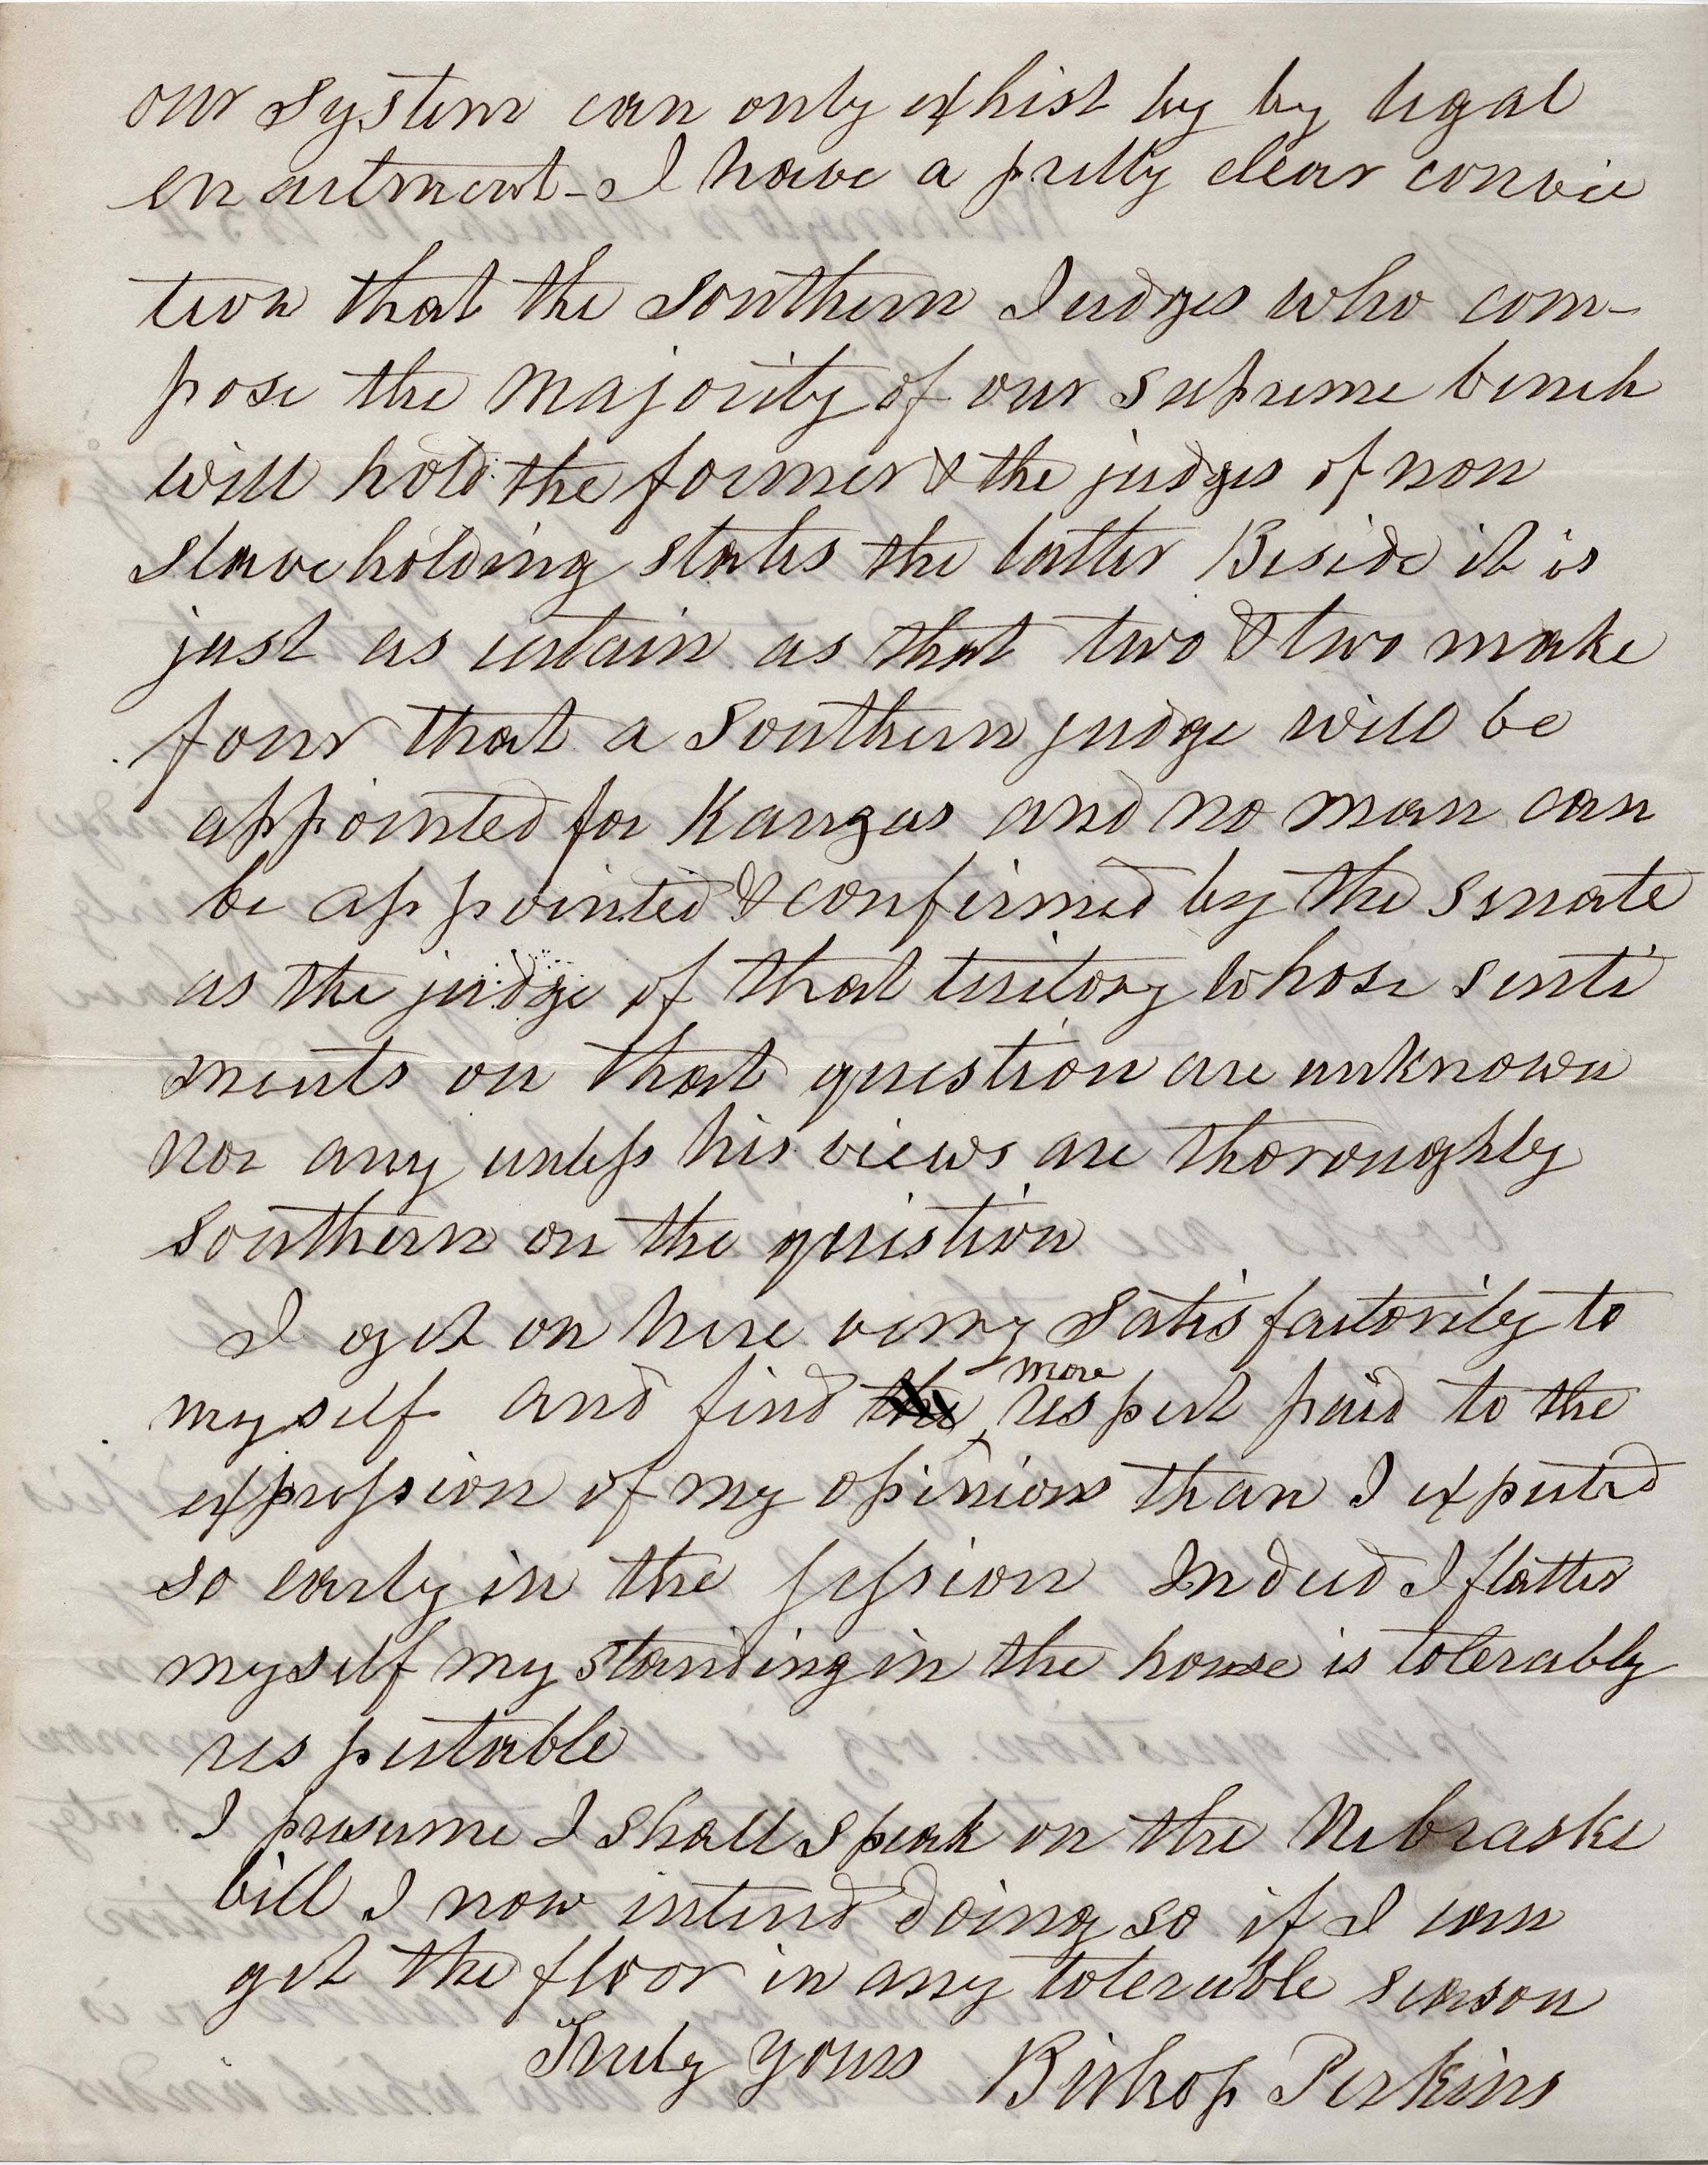 our system can only exhist by by legal
enactment - I have a pretty clear convic
tion that the Southern Judges who com-
pose the majority of our supreme bench
will hold the former & the judges of non
slaveholding states the latter Beside it is
just as certain as that two & two make
four that a Southern judge will be
appointed for Kanzas and no man can
be appointed & confirmed by the Senate
as the judge of that teritory whose senti
ments on that question are unknown
nor any unless his views are thoroughly
southern on the question
I get on here very satisfactorily to
myself and find the more respect paid to the
expression of my opinions than I expected
so early in the session Indeed I flatter
myself my standing in the house is tolerably
respectable
I presume I shall speak on the Nebraska
bill I now intend doing so if I can
get the floor in any tolerable season
Truly yours Bishop Perkins